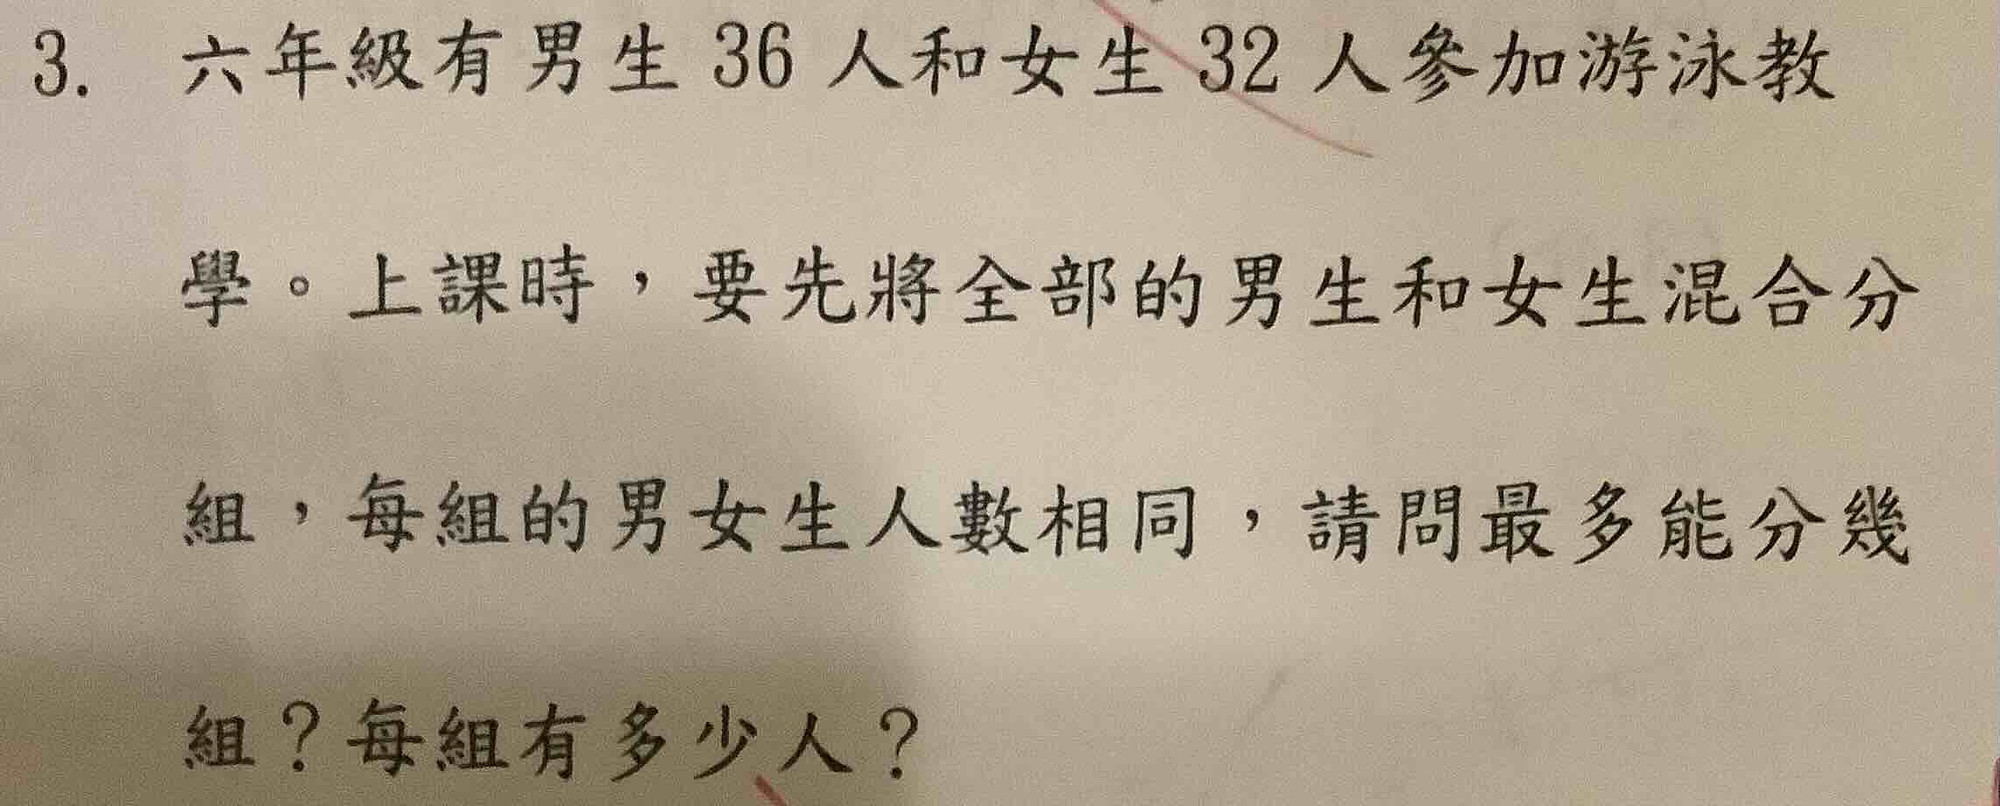 3. 六年級有男生 36 人和女生 32 人參加游泳教
學。上課時，要先將全部的男生和女生混合分
組，每組的男女生人數相同，請問最多能分幾
組？每組有多少人？